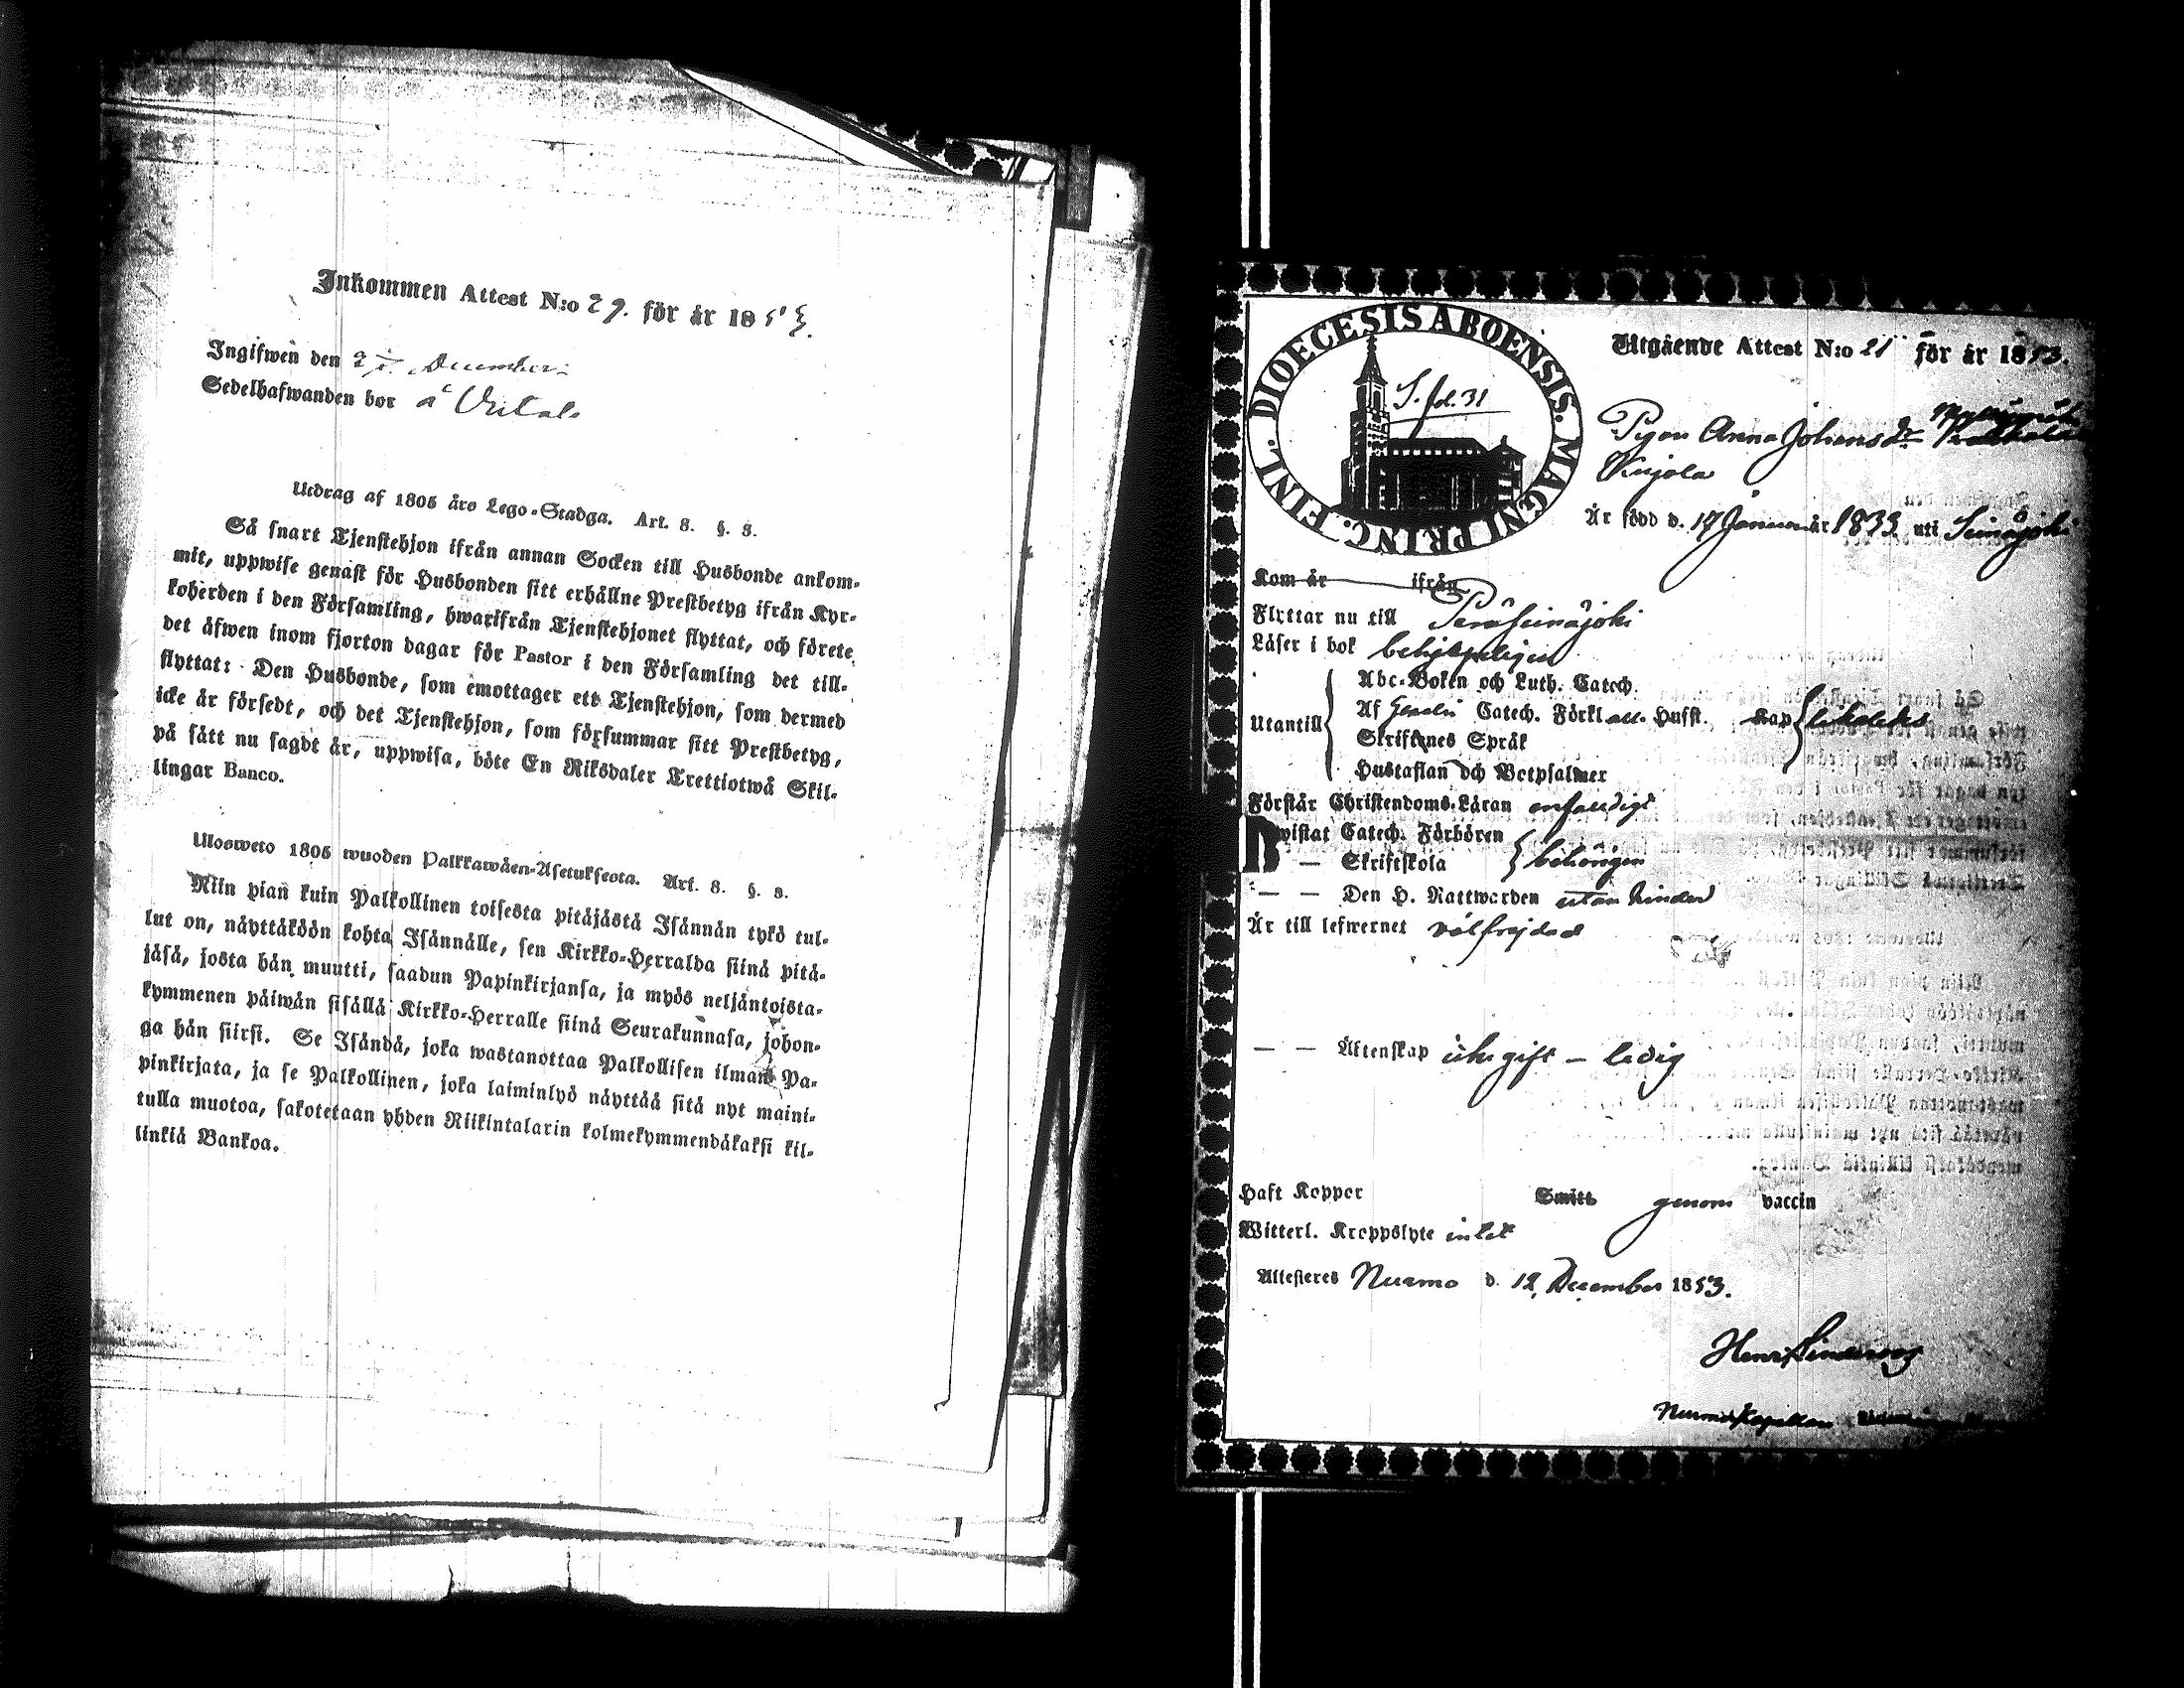 Inkommen Attest N:o 29. för år 1853.
Ingifwen den December
Sedelhafwanden bor å
Utdrag af 1805 års Lego-Stadga. Art. 8. §. 8.
Så snart Tjenstehjon ifrån annan Socken till Husbonde ankom-
mit, uppwise genast för Husbonden sitt erhållne Prestbetyg ifrån Kyr-
koherden i den Församling, hwarifrån Tjenstehjonet flyttat, och förete
det äfwen inom fjorton dagar för Pastor i den Församling det till-
flyttat: Den Husbonde, som emottager ett Tjenstehjon, som dermed
icke är försedt, och det Tjenstehjon, som försummar sitt Prestbetyg,
på sätt nu sagdt är, uppwisa, böte En Riksdaler Trettiotwå Skil-
lingar Banco.
Ulosweto 1805 wuoden Palkkawäen-Asetuksesta. Art. 8. §. 8.
Niin pian kuin Palkollinen toisesta pitäjästä Isännän tykö tul-
lut on, näyttäköön kohta Isännälle, sen Kirkko-Herralda siinä pitä-
jäsä, josta hän muutti, saadun Papinkirjansa, ja myös neljäntoista-
kymmenen päiwän sisällä Kirkko-Herralle siinä Seurakunnasa, johon-
ga hän siirsi. Se Isändä, joka wastanottaa Palkollisen ilman Pa-
pinkirjata, ja se Palkollinen, joka laiminlyö näyttää sitä nyt maini-
tulla muotoa, sakotetaan yhden Riikintalarin kolmekymmendäkaksi kil-
linkiä Bankoa.
DIOECESIS ABOENSIS. MAGNI PRINC. FINL.
S. fol. 31
Utgående Attest N:o 21 för år 1853.
Pigan Anna Johansdr
Kujala
Är född d. 17 Januari år 1833 uti Seinäjoki
Kom år ifrån
Flyttar nu till Peräseinäjoki
Läser i bok behjelpeligen
Abc-Boken och Luth. Catech.
Utantill Af Catech. Förkl. Husst. Kap likaledes
Skriftenes Språk
Hustaflan och Botpsalmer
Förstår Christendoms-Läran enfaldigt
Bewistat Catech. Förhören
— Skriftskola behörigen
— — Den H. Nattwarden utan hinder
Är till lefwernet välfrejdad
— — Äktenskap icke gift – ledig
Haft Koppor Smitt genom vaccin
Witterl. Kroppslyte intet
Attesteres Nurmo d. 12 December 1853.
Nurmo Kapellan